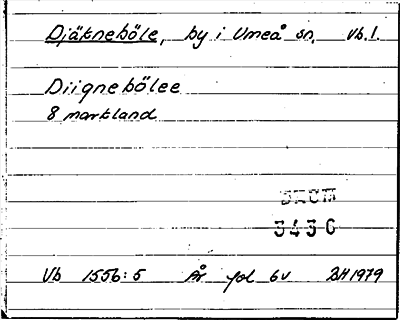 Djäkneböle, by i Umeå sn. Vb.l.
Diignebölee
8 markland
3436
Vb 1556:5 År fol 6v BH 1979